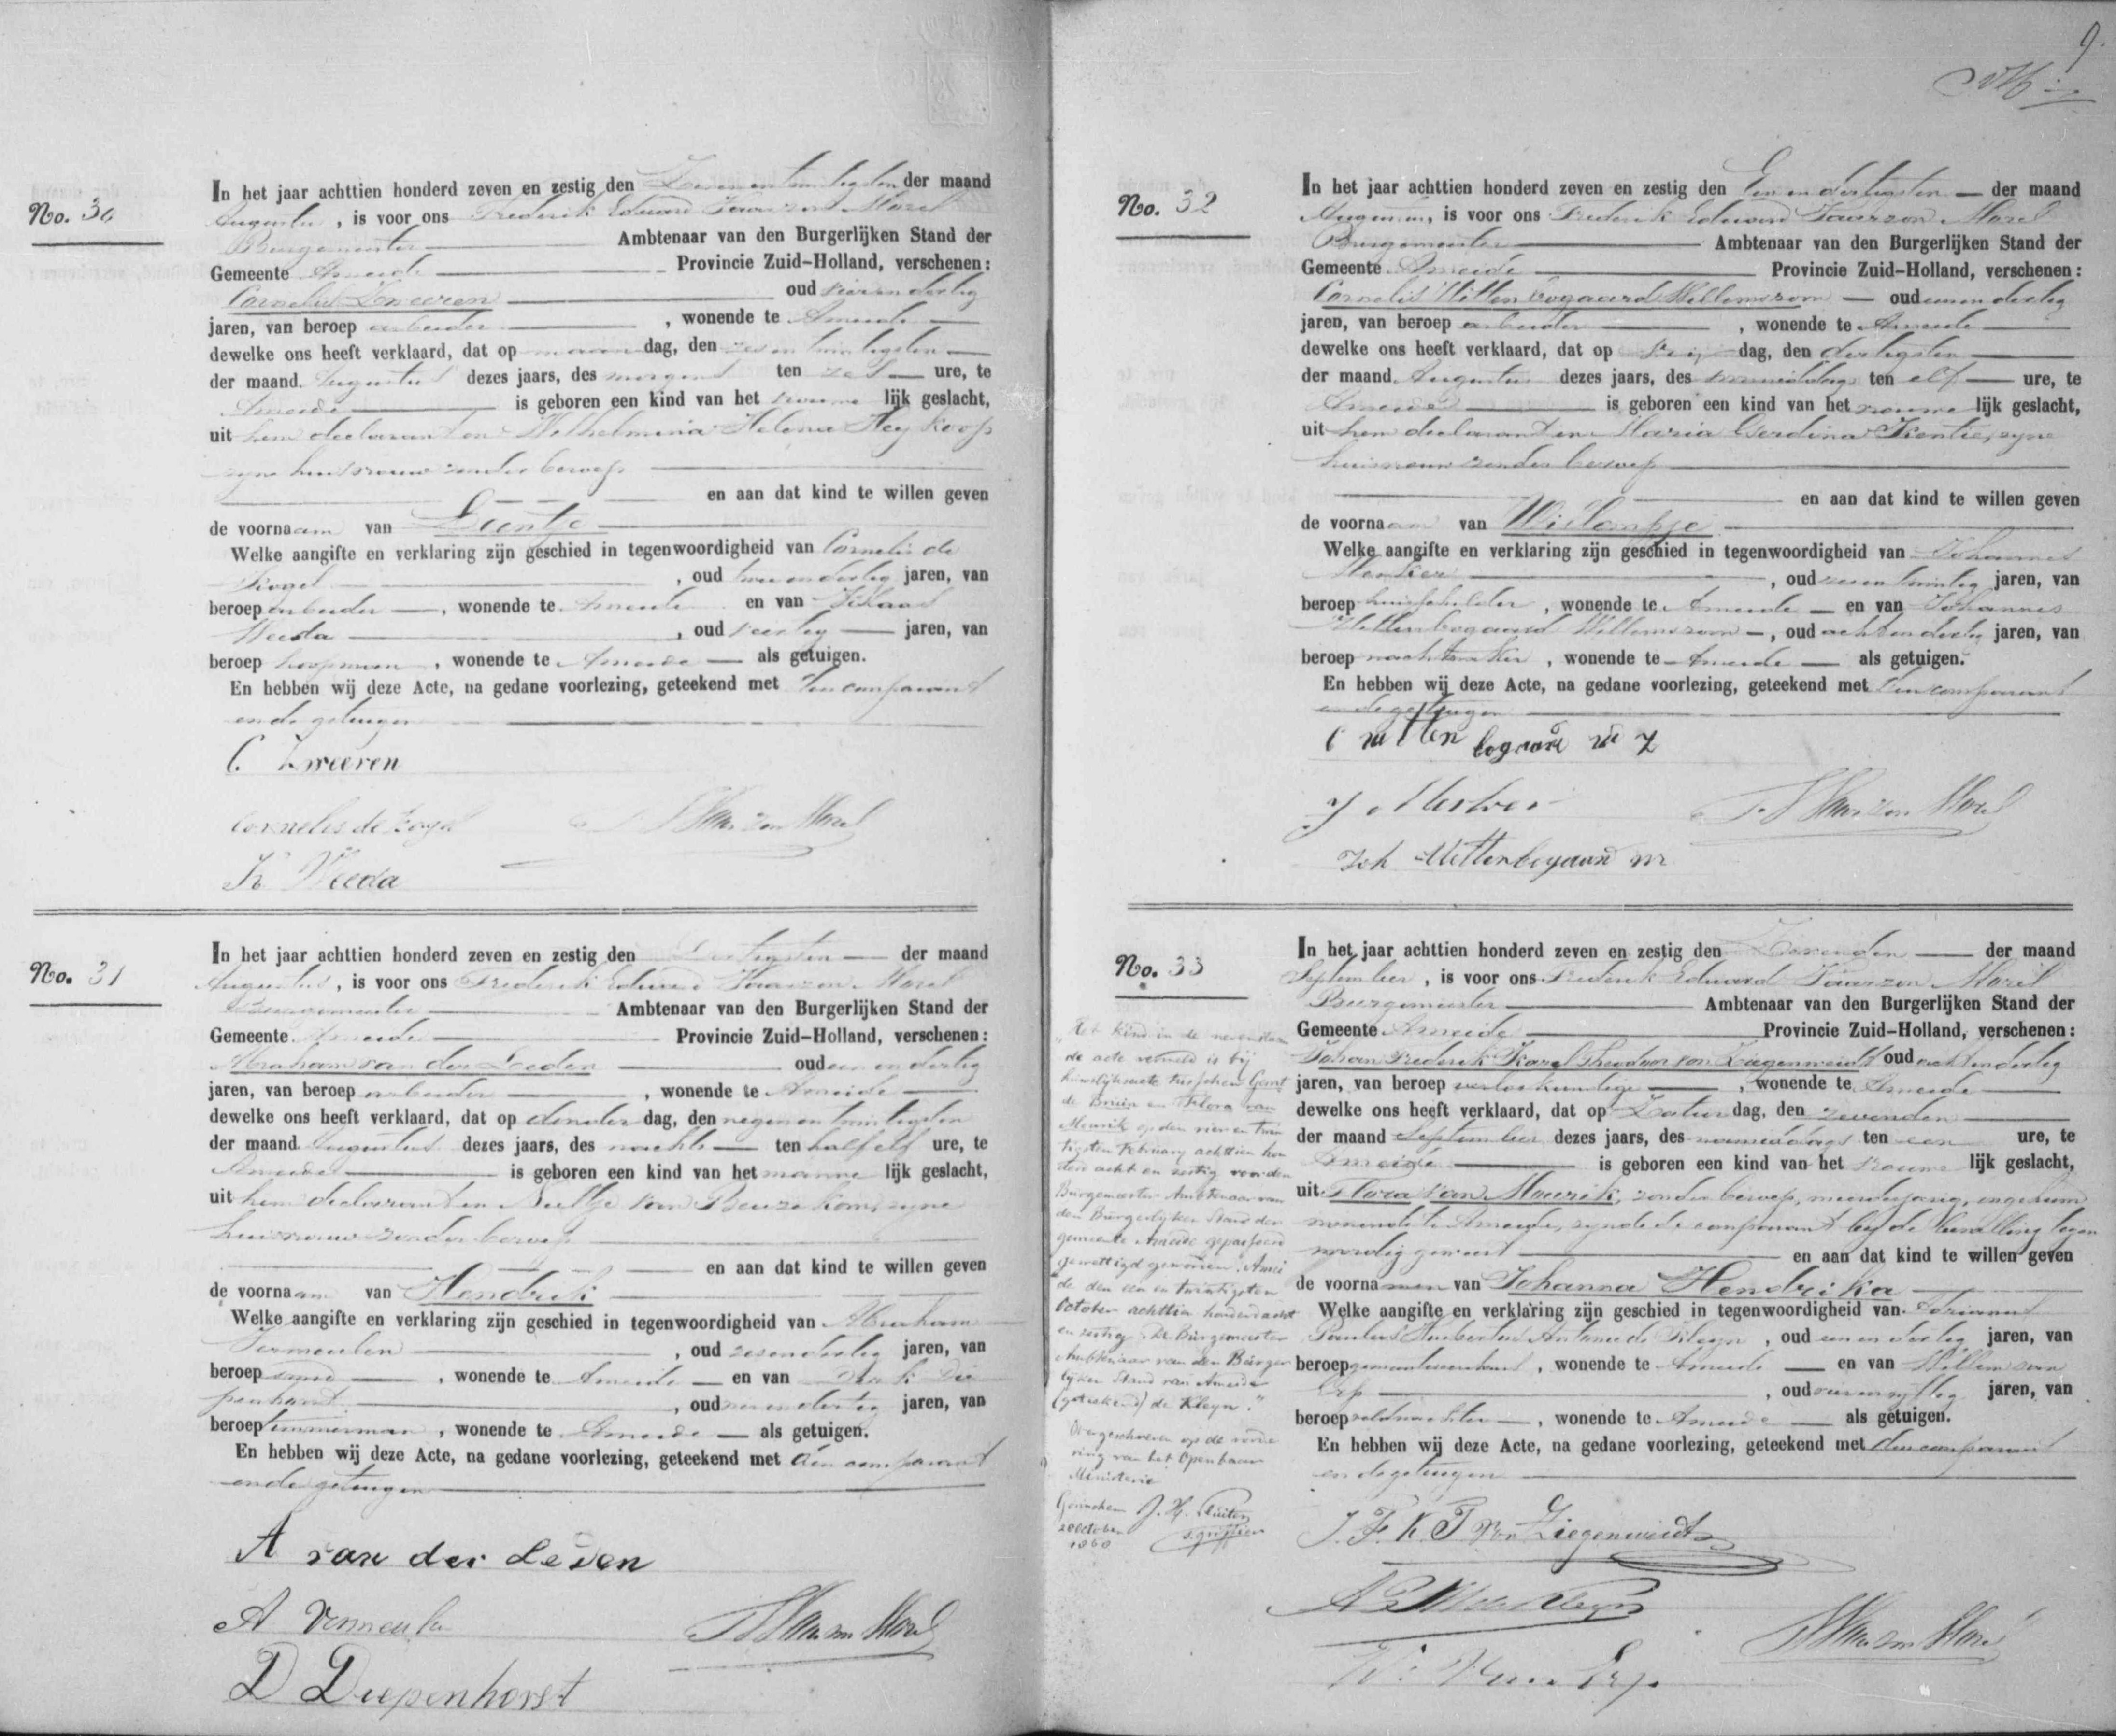 No. 30
In het jaar achttien honderd zeven en zestig den Zevenentwintigsten der maand
Augustus, is voor ons Frederik Eduard Haarzon Morel
Burgemeester Ambtenaar van den Burgerlijken Stand der
Gemeente Ameide Provincie Zuid-Holland, verschenen:
Cornelis Zweeren oud vierendertig
jaren, van beroep arbeider, wonende te Ameide
dewelke ons heeft verklaard, dat op maandag, den zesentwintigsten
der maand Augustus dezes jaars, des morgens ten zes ure, te
Ameide is geboren een kind van het vrouwelijk geslacht,
uit hem declarant en Wilhelmina Helena Heykoop
zyne huisvrouw zonder beroep
en aan dat kind te willen geven
de voornaam van Leentje
Welke aangifte en verklaring zijn geschied in tegenwoordigheid van Cornelis de
, oud tweeendertig jaren, van
beroep arbeider, wonende te Ameide en van Klaas
Weeda, oud veertig jaren, van
beroep koopman, wonende te Ameide als getuigen.
En hebben wij deze Acte, na gedane voorlezing, geteekend met den comparant
en de getuigen
C. Zweeren
Cornelis de
K Weeda
No. 31
In het jaar achttien honderd zeven en zestig den Dertigsten der maand
Augustus, is voor ons Frederik Eduard Haarzon Morel
Burgemeester Ambtenaar van den Burgerlijken Stand der
Gemeente Ameide Provincie Zuid-Holland, verschenen:
Abraham van der Leeden oud eenendertig
jaren, van beroep arbeider, wonende te Ameide
dewelke ons heeft verklaard, dat op donderdag, den negenentwintigsten
der maand Augustus dezes jaars, des nachts ten half elf ure, te
Ameide is geboren een kind van het mannelijk geslacht,
uit hem declarant en Neeltje van Beuzekom, zyne
huisvrouw zonder beroep
en aan dat kind te willen geven
de voornaam van Hendrik
Welke aangifte en verklaring zijn geschied in tegenwoordigheid van Abraham
Vermeulen, oud zesendertig jaren, van
beroep, wonende te Ameide en van Dirk Die
penhorst, oud jaren, van
beroep timmerman, wonende te Ameide als getuigen.
En hebben wij deze Acte, na gedane voorlezing, geteekend met den comparant
en de getuigen
A van der Leden
A Vermeulen
D Diepenhorst
9
No. 32
In het jaar achttien honderd zeven en zestig den Een en dertigsten der maand
Augustus, is voor ons Frederik Eduard Haarzon Morel
Burgemeester Ambtenaar van den Burgerlijken Stand der
Gemeente Ameide Provincie Zuid-Holland, verschenen:
Cornelis Uittenbogaard Willemszoon oud eenendertig
jaren, van beroep arbeider, wonende te Ameide
dewelke ons heeft verklaard, dat op Vrydag, den dertigsten
der maand Augustus dezes jaars, des voormiddags ten elf ure, te
Ameide is geboren een kind van het vrouwelijk geslacht,
uit hem declarant en Maria Gerdina Kentie, zyne
huisvrouw zonder beroep
en aan dat kind te willen geven
de voornaam van Willempje
Welke aangifte en verklaring zijn geschied in tegenwoordigheid van Johannes
, oud zesentwintig jaren, van
beroep huisschilder, wonende te Ameide en van Johannes
Uittenbogaard Willemszoon, oud achtendertig jaren, van
beroep nachtwaker, wonende te Ameide als getuigen.
En hebben wij deze Acte, na gedane voorlezing, geteekend met den comparant
en de getuigen
C uitten bogaard W Z
Joh Uittenbogaard W
No. 33
In het jaar achttien honderd zeven en zestig den Zevenden der maand
September, is voor ons Frederik Eduard Haarzon Morel
Burgemeester Ambtenaar van den Burgerlijken Stand der
Gemeente Ameide Provincie Zuid-Holland, verschenen:
Johan Frederik Karel Theodoor von Ziegenweidt oud achtendertig
jaren, van beroep verloskundige, wonende te Ameide
dewelke ons heeft verklaard, dat op Zaturdag, den zevenden
der maand September dezes jaars, des voormiddags ten een ure, te
Ameide is geboren een kind van het vrouwelijk geslacht,
uit Flora van Maurik, zonder beroep, meerderjarig, ongehuwd
wonende te Ameide, zynde de comparant by de bevalling tegen
woordig geweest en aan dat kind te willen geven
de voornamen van Johanna Hendrika
Welke aangifte en verklaring zijn geschied in tegenwoordigheid van Adrianus
Paulus Huibertus Antonie de Kleyn, oud eenendertig jaren, van
beroep, wonende te Ameide en van Willem van
Erp, oud jaren, van
beroep veldwachter, wonende te Ameide als getuigen.
En hebben wij deze Acte, na gedane voorlezing, geteekend met den comparant
en de getuigen
J. F. K. T. von Ziegenweidt
W. van Erp
"Het kind in de nevenstaan
de acte vermeld is bij
huwelijksacte tusschen Gerrit
de Bruin en Flora van
Maurik op den vier en twin
tigsten February achttien hon
derd acht en zestig voor den
Burgemeester Ambtenaar van
den Burgerlyken Stand der
gemeente Ameide gepasseerd
gewettigd geworden. Amei
de den een en twintigsten
October achttien honderd acht
en zestig. De Burgemeester
Ambtenaar van den Burger
lyken Stand van Ameide
(geteekend) de Kleyn."
Overgeschreven op de vorde
ring van het Openbaar
Ministerie
Gorinchem
October